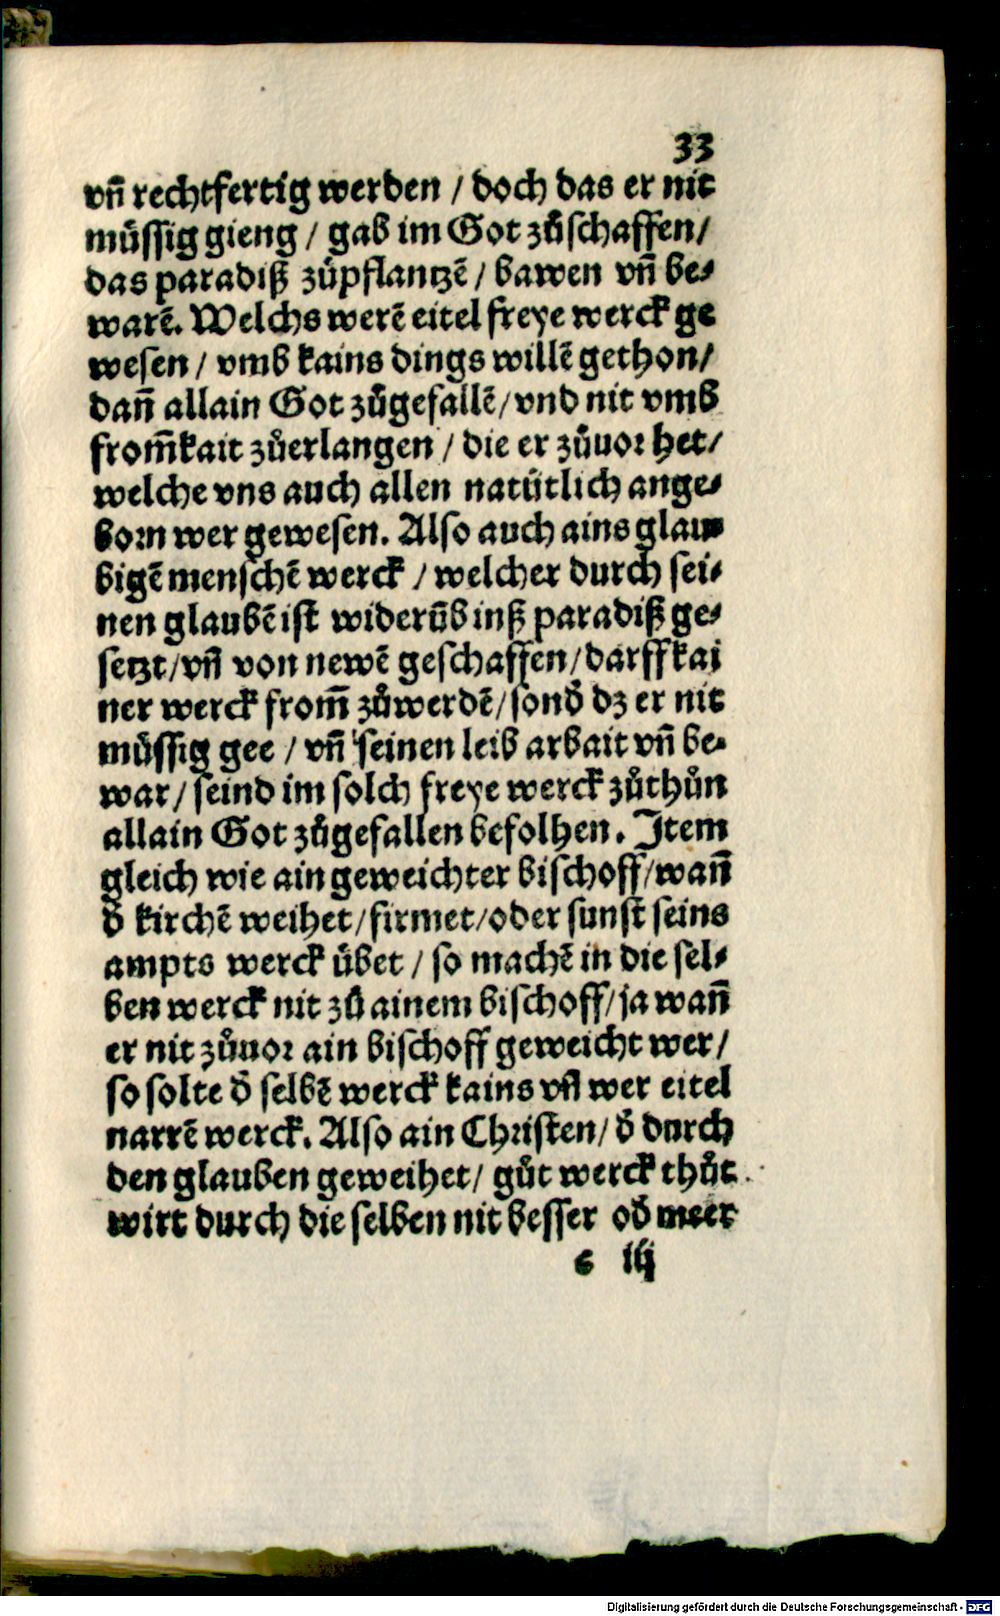 33
vñ rechtfertig werden / doch das er nit
müssig gieng / gab im Got zůschaffen/
das paradiß zůpflantzẽ / bawen vñ be⸗
warẽ. Welchs werẽ eitel freye werck ge
wesen / vmb kains dings willẽ gethon/
dañ allain Got zůgefallẽ/vnd nit vmb
from̃kait zůerlangen / die er zůuor het/
welche vns auch allen natütlich ange⸗
born wer gewesen. Also auch ains glau⸗
bigẽ menschẽ werck / welcher durch sei⸗
nen glaubẽ ist widerũb inß paradiß ge⸗
setzt/vñ von newẽ geschaffen/darff kai
ner werck from̃ zůwerdẽ/sond̕ dz er nit
müssig gee / vñ seinen leib arbait vñ be⸗
war/ seind im solch freye werck zůthůn
allain Got zůgefallen befolhen. Item
gleich wie ain geweichter bischoff/wañ
d̕ kirchẽ weihet/firmet/oder sunst seins
ampts werck übet / so machẽ in die sel⸗
ben werck nit zů ainem bischoff/ja wañ
er nit zůuor ain bischoff geweicht wer/
so solte d̕ selbẽ werck kains vñ wer eitel
narrẽ werck. Also ain Christen/ d̕ durch
den glauben geweihet/ gůt werck thůt
wirt durch die selben nit besser od̕ meer
e iij
Digitalisierung gefördert durch die Deutsche Forschungsgemeinschaft - DFG